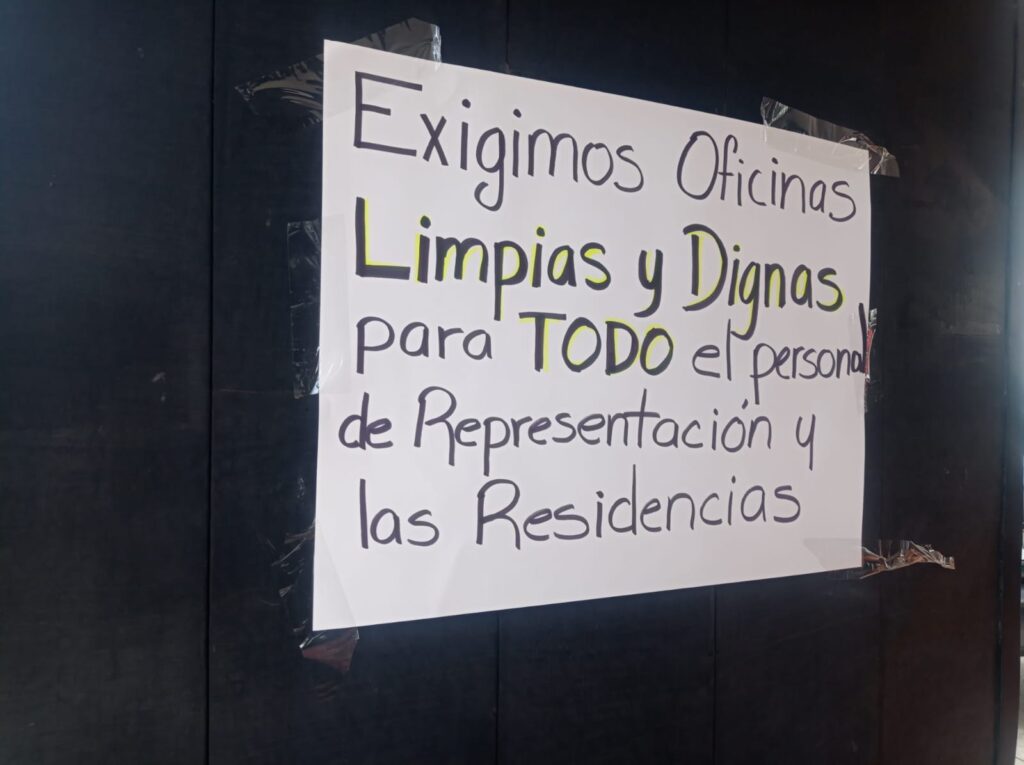 Exigimos Oficinas
Limpias y Dignas
para TODO el personal
de Representación y
las Residencias